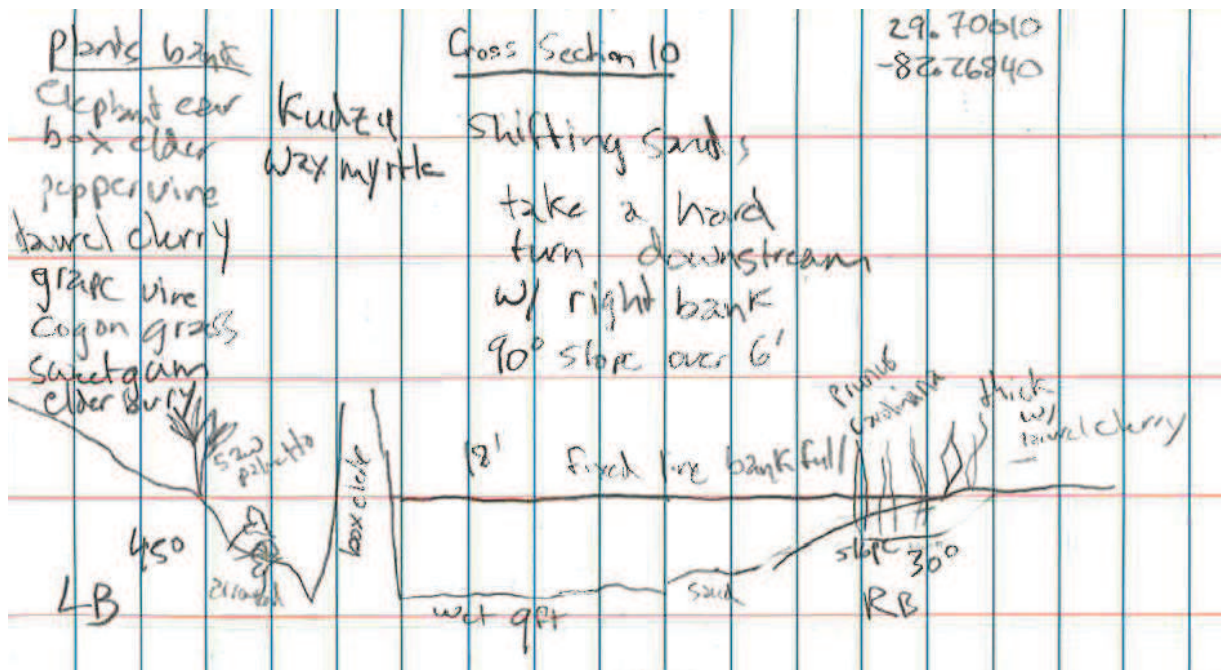 Plants bank
Elephant ear
box elder
pepper vine
laurel cherry
grape vine
Cogon grass
sweetgum
elder burry
Kudzu
wax myrtle
Cross Section 10
Shifting Sands
take a hard
turn downstream
w/ right bank
90° slope over 6'
29.70010
-82.26840
saw
palmetto
box elder
18' fixed line bankfull
prunus
caroliniana
thick
w/
laurel cherry
45°
LB
wet 9ft
sand
slope 30°
RB